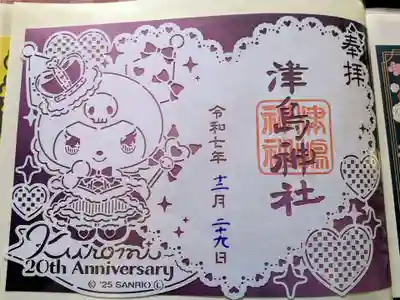 奉拝
津島神社
令和七年 十二月 二十九日
Kuromi
20th Anniversary
© '25 SANRIO Ⓛ